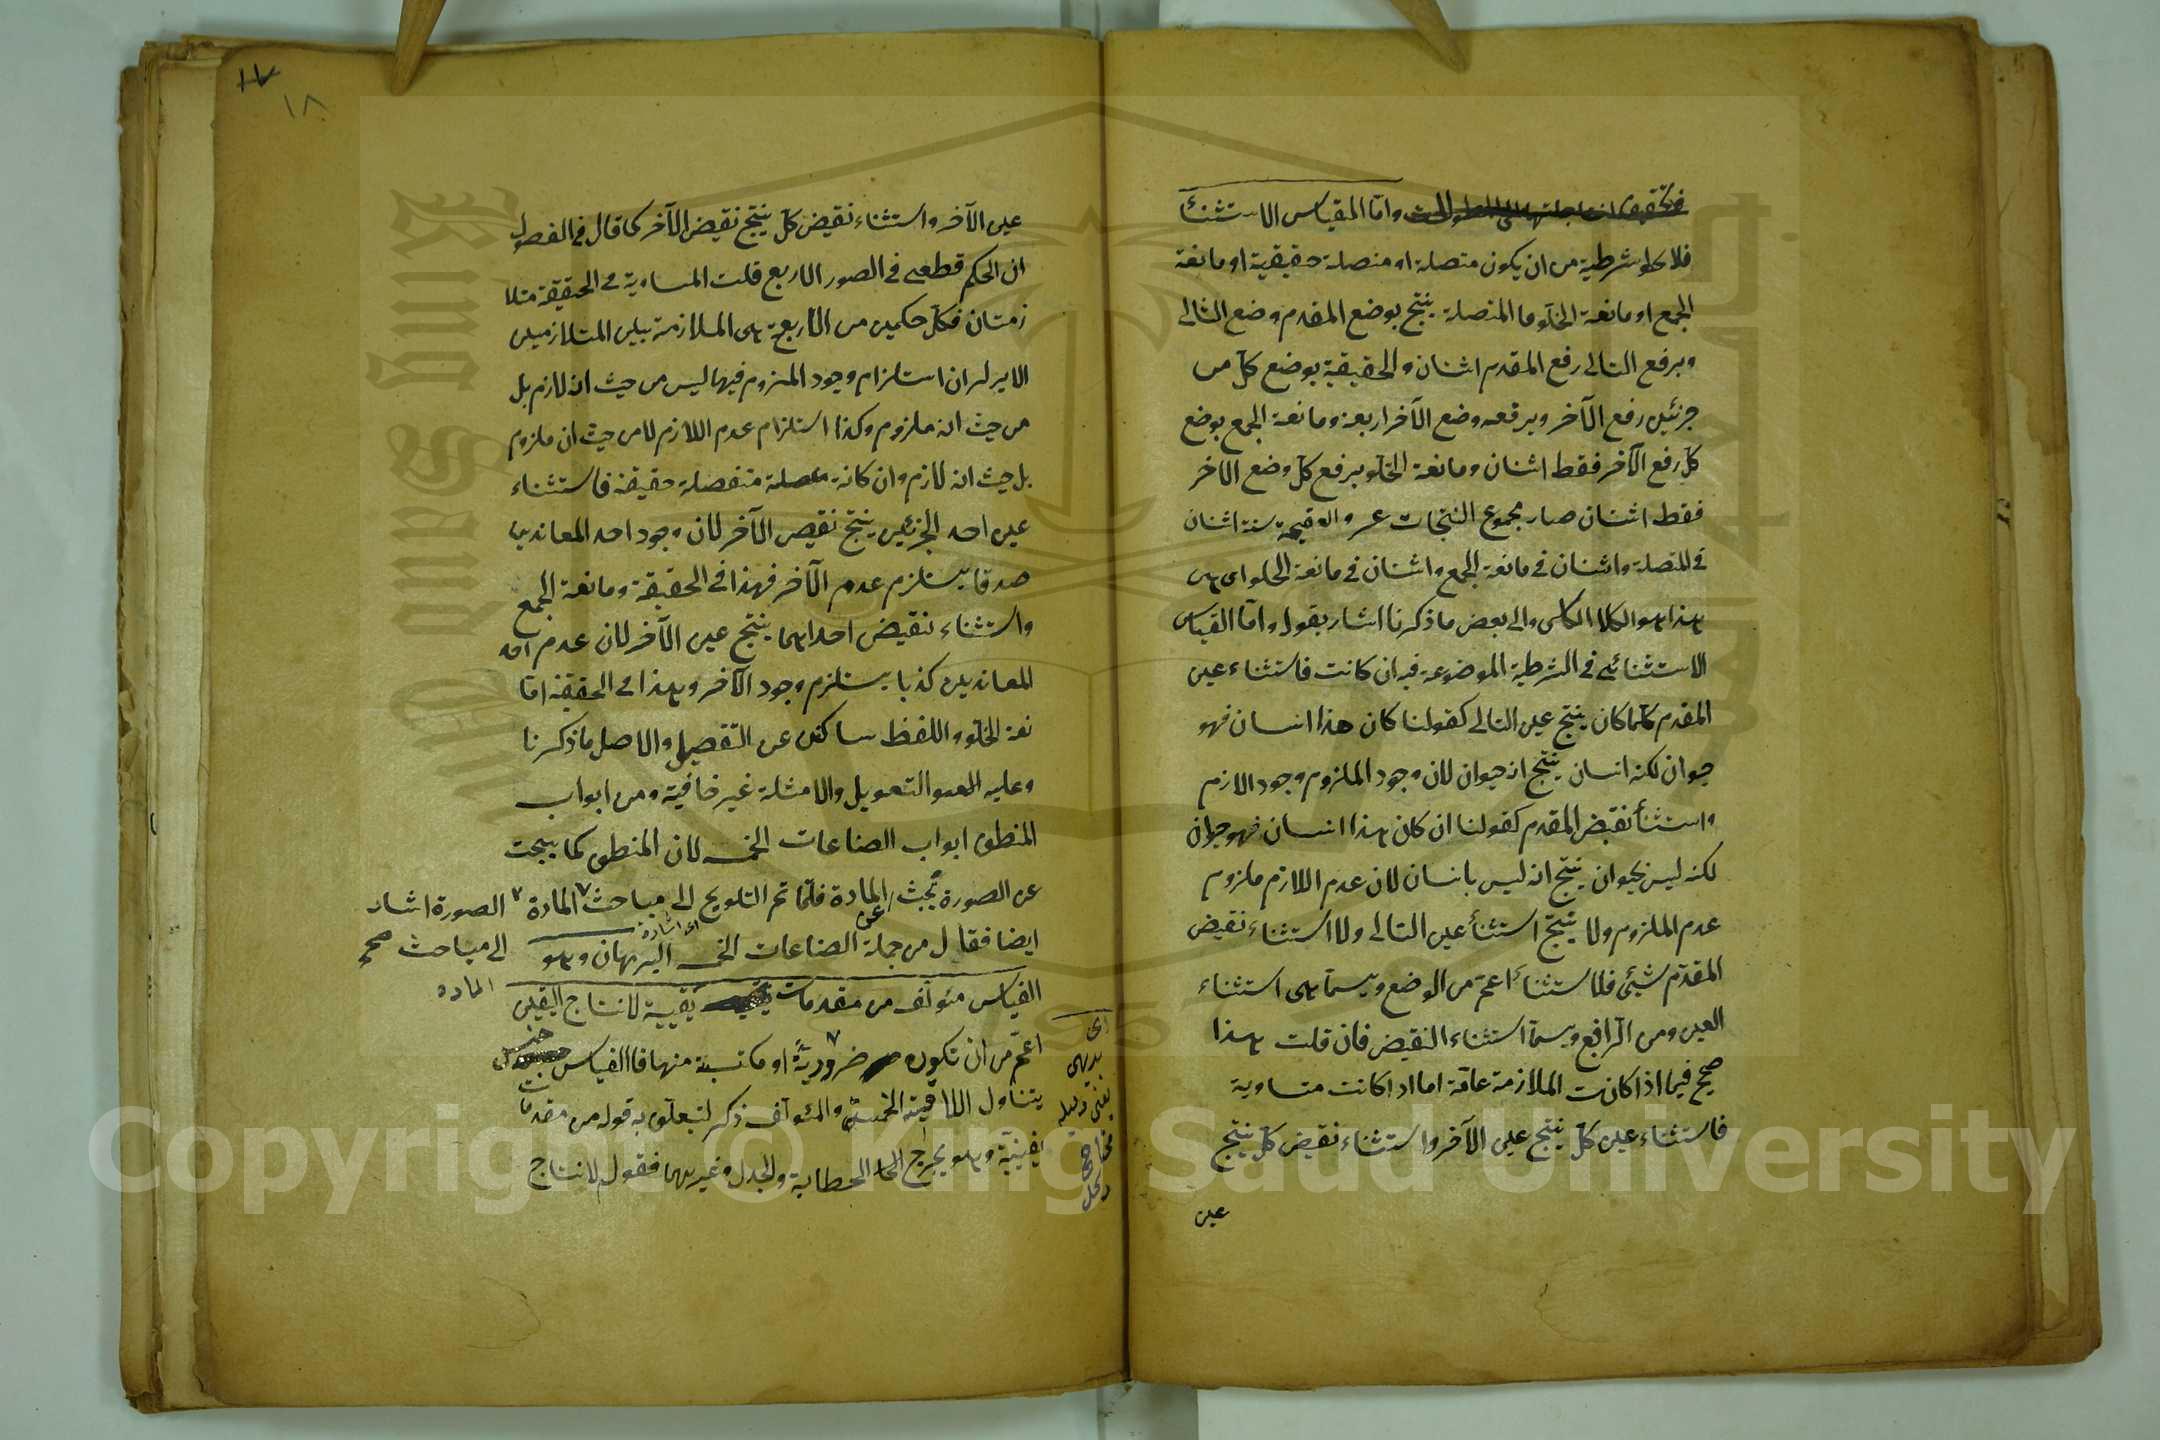 واما القياس الاستثنأ
فلا يخلو شرطية من ان يكون متصلة او منصلة حقيقية او مانعة
الجمع او مانعة الخلو فا المتصلة ينتج بوضع المقدم وضع التالى
وبرفع التالى رفع المقدم اثنان والحقيقية بوضع كل من
جزئين رفع الآخر وبرفعه وضع الآخر اربعة ومانعة الجمع بوضع
كل رفع الآخر فقط اثنان ومانعة الخلو برفع كل وضع الاخر
فقط اثنان صار مجموع النتجات عشر والعقيمة ستة اثنان
فى المتصلة واثنان فى مانعة الجمع واثنان فى مانعة الخلو
هذا هو الكلام والى بعض ما ذكرنا اشار بقول واما القياس
الاستثنائى فى الشرطية الموضوعة فيه ان كانت فاستثناء عين
المقدم كلما كان ينتج عين التالى كقولنا كان هذا انسان فهو
حيوان لكنه انسان ينتج انه حيوان لان وجود الملزوم وجود الازم
واستثنأ نقيض المقدم كقولنا ان كان هذا انسان فهو حيوان
لكنه ليس بحيوان ينتج انه ليس بانسان لان عدم اللازم ملزوم
عدم الملزوم ولا ينتج استثنأ عين التالى ولا استثناء نقيض
المقدم شيئى فلاستثنأ اعم من الوضع ويسمآ هى استثناء
العين ومن الرافع ويسمآ استثناء النقيض فان قلت هذا
صحيح فيما اذا كانت الملازمة عامة اما اذا كانت متساوية
فاستثناء عين كل ينتج عين الآخر واستثناء نقيض كل ينتج
عين
١٧
١٨
عين الآخر واستثناء نقيض كل ينتج نقيض الآخر كما قال فى الفصول
ان الحكم قطعى فى الصور الاربع قلت المساوية فى الحقيقة متلا
زمتان فكل حكمين من الاربعة هى الملازمة بين المتلازمين
الا ير ان استلزام وجود المزوم فيها ليس من حيث انه لازم بل
من حيث انه ملزوم وكذا استلزام عدم اللازم لا من حيث ان ملزوم
بل حيث انه لازم وان كانة منفصلة حقيقة فاستثناء
عين احد الجزئين ينتج نقيض الآخر لان وجود احد المعاندين
صدقا يستلزم عدم الآخر فهذا فى الحقيقة ومانعة الجمع
واستثناء نقيض احداهما ينتج عين الآخر لان عدم احد
المعاندين كذبا يستلزم وجود الآخر وهذا فى الحقيقة اما
نعة الخلو واللفظ ساكت عن التفصيل والاصل ما ذكرنا
وعليه التعويل والامثلة غير خافية ومن ابواب
المنطق ابواب الصناعات الخمسة لان المنطق كما يبحث
عن الصورة يبحث عن المادة فلما تم التلويح الى مباحث المادة الصورة اشار
الى مباحث صح
المادة
اى اشارة
ايضا فقال من جملة الصناعات الخمسة البرهان وهو
القياس مئولف من مقدمات يقينية لانتاج اليقين
اعم من ان تكون ضرورية او مكتسبة منها فا القياس جنس
يتناول الاقيسة الخمسة والمئولف ذكر لتعلق به قوله من مقدمات
يقينية وهو يخرج الخطابة والجدل وغيرهما فقول لانتاج
اى
بديهى
يعنى دليله
محتاج
دكل